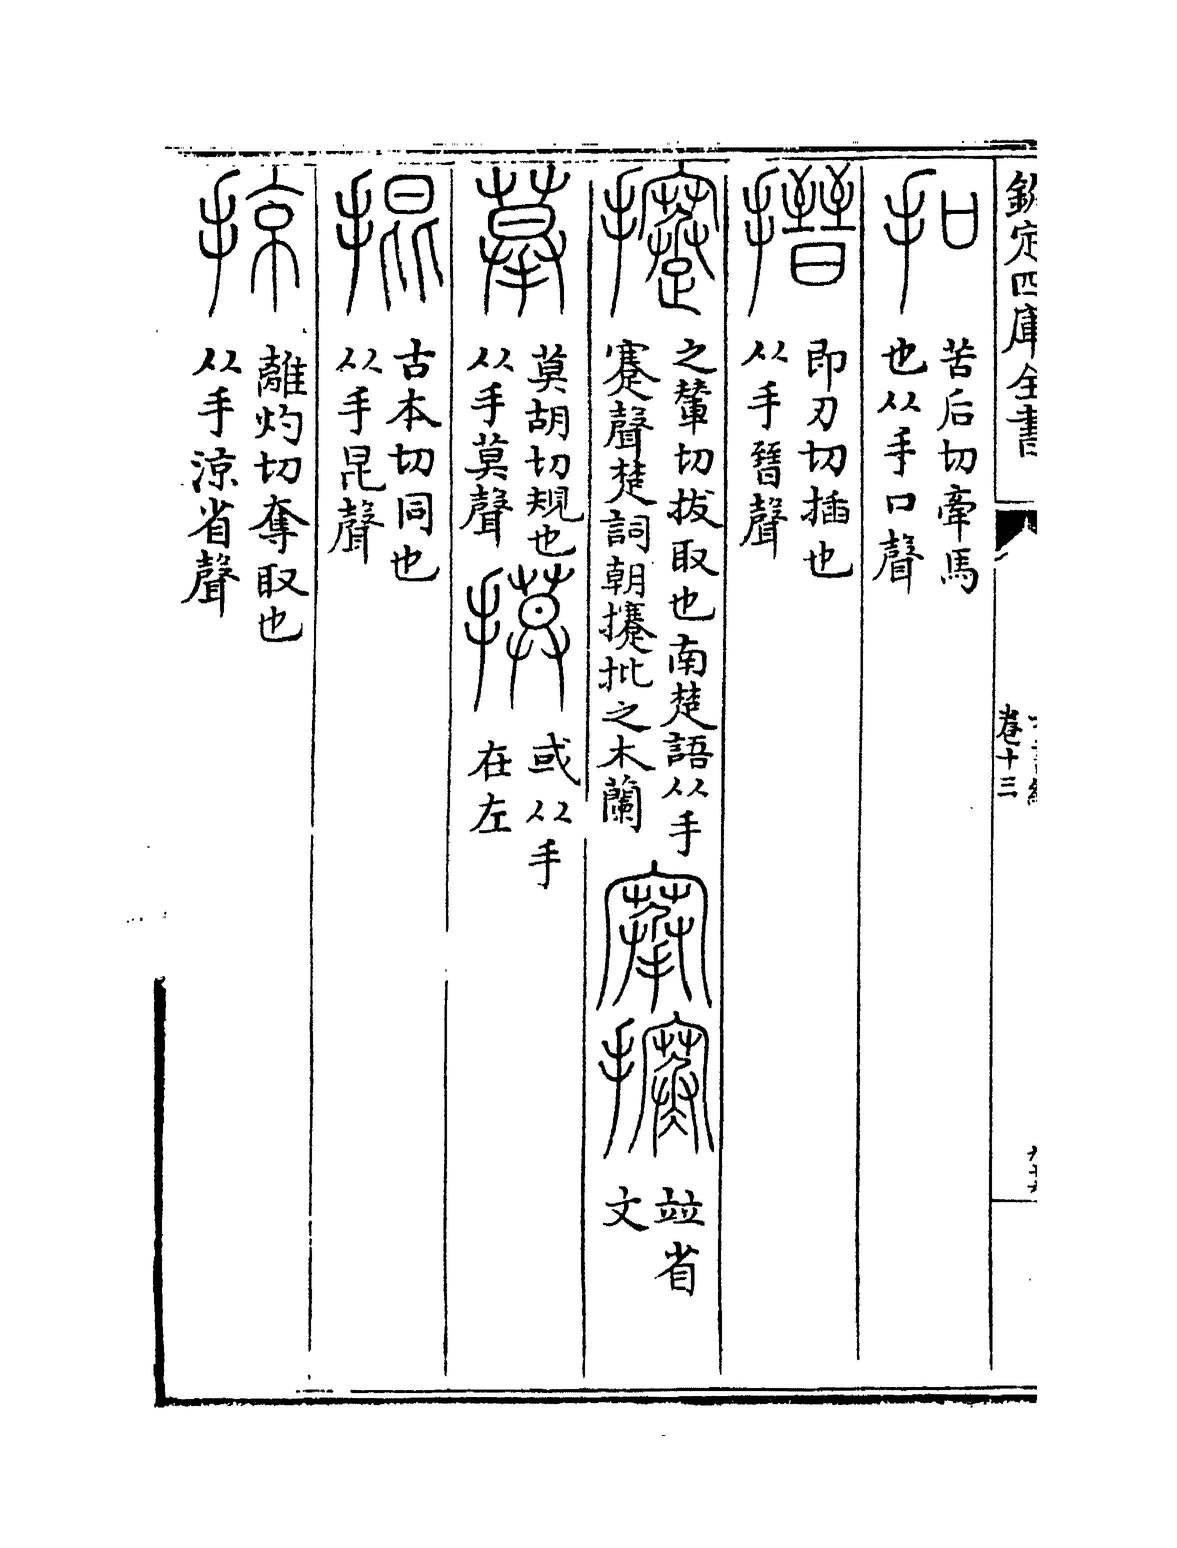 欽定四庫全書
卷十三
扣
苦后切牽馬
也从手口聲
搢
即刃切插也
从手晉聲
攓
之輦切拔取也南楚語从手
蹇聲楚詞朝攓批之木蘭
並省
文
摹
莫胡切規也
从手莫聲
摸
或从手
在左
掍
古本切同也
从手昆聲
掠
離灼切奪取也
从手涼省聲